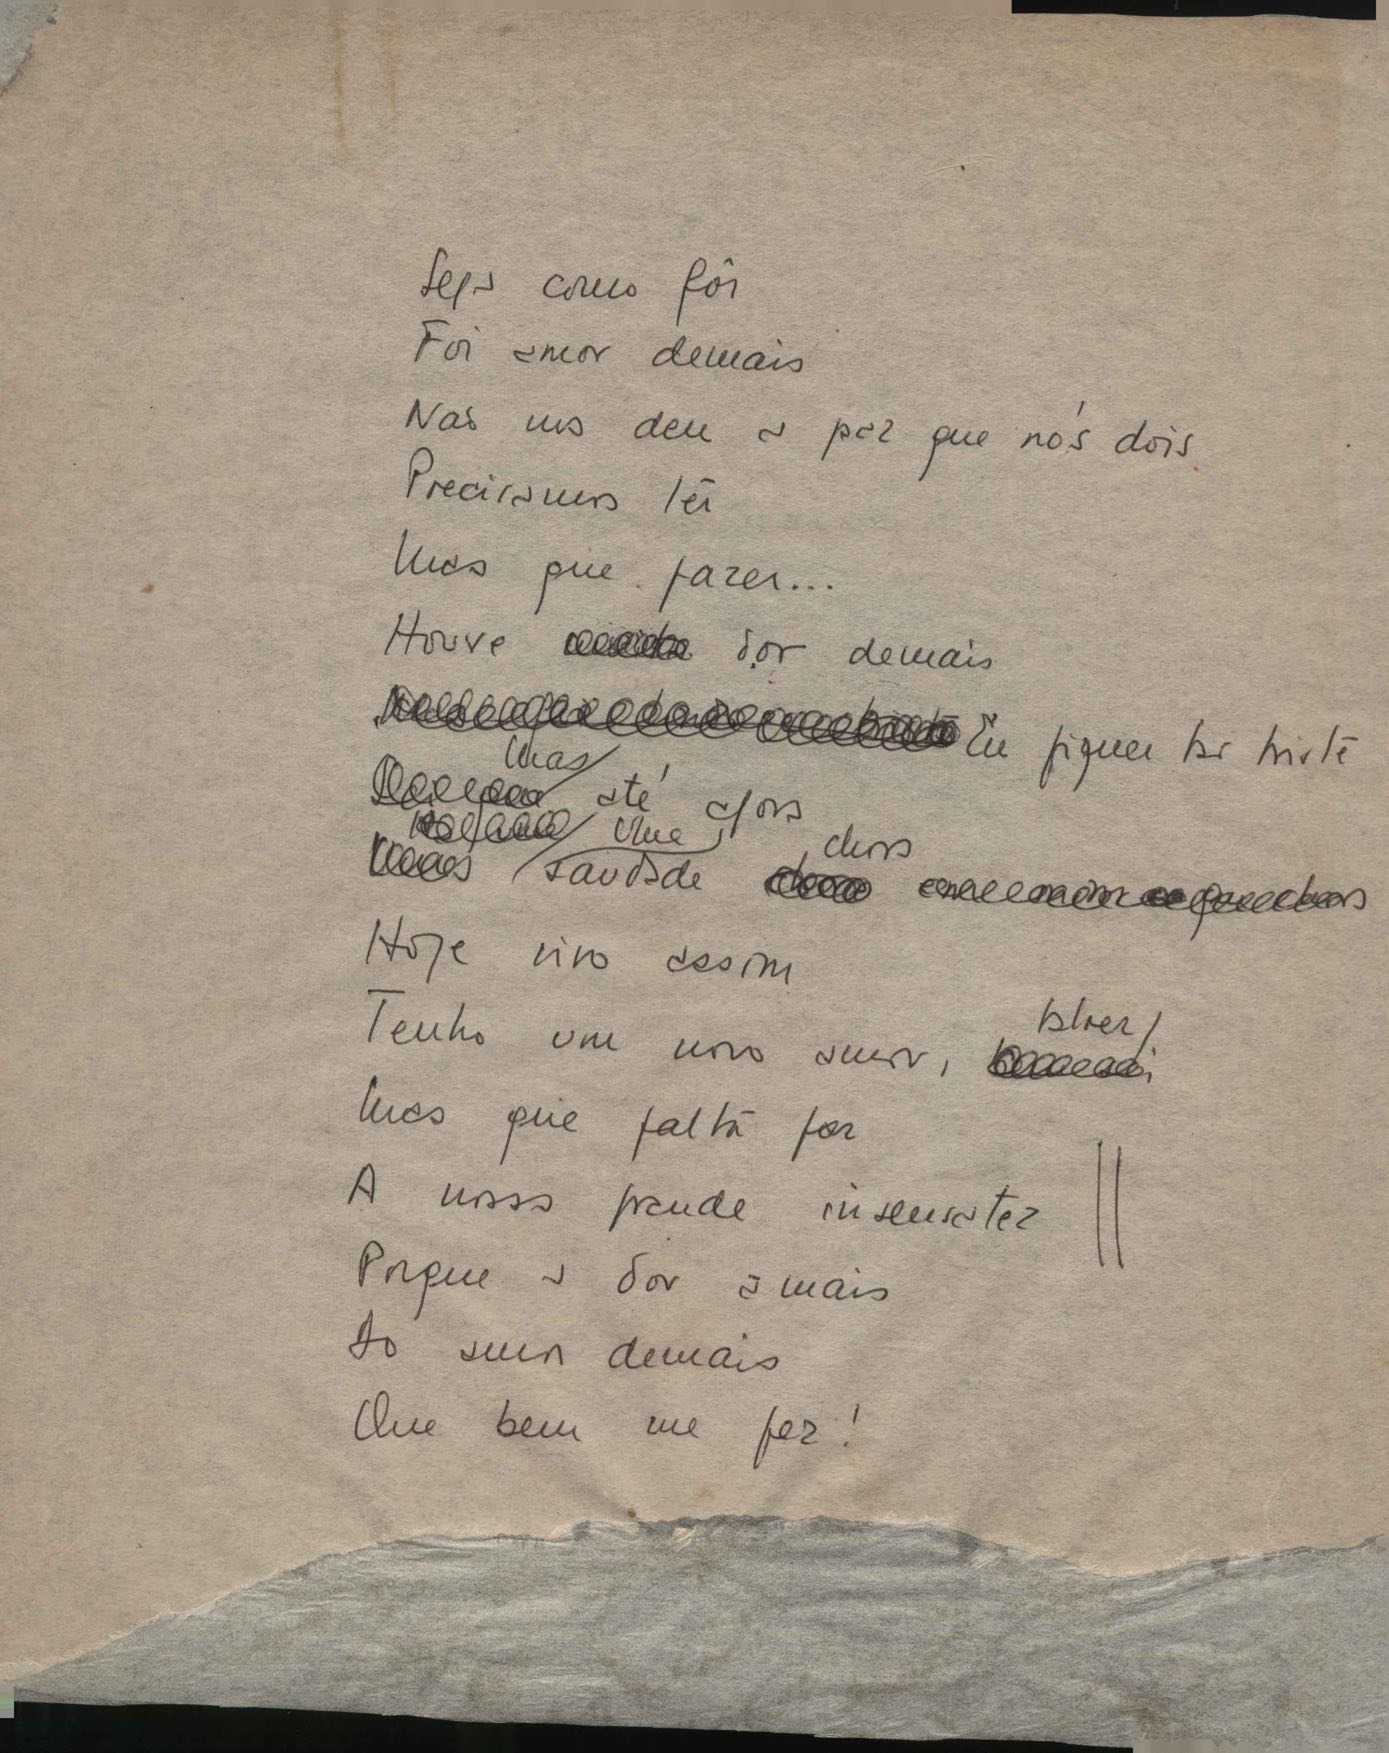 Seja como fôr
Foi amor demais
Não nos deu a paz que nós dois
Precisamos têr
Mas que fazer...
Houve dor demais
Eu fiquei tão triste
Mas
até agora
Uma
chora
saudade
Hoje vivo assim
talvez
Tenho um novo amor,
Mas que falta faz
A nossa grande insensatez
Porque a dor a mais
Do amor demais
Que bem me fez!